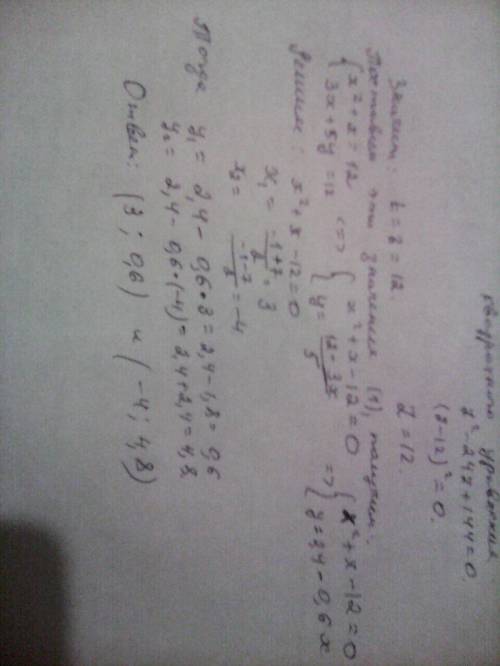 квадратного уравнения
z² - 24z + 144 = 0.
(z - 12)² = 0.
z = 12.
Значит: t = z = 12.
Поставим эти значения (1), получим:
{ x² + x = 12 <=> { x² + x - 12 = 0 => { x² + x - 12 = 0
{ 3x + 5y = 12 { y = (12 - 3x)/5 { y = 2,4 - 0,6x
Решим: x² + x - 12 = 0
x₁ = (-1 + 7)/2 = 3
x₂ = (-1 - 7)/2 = -4
Тогда y₁ = 2,4 - 0,6 · 3 = 2,4 - 1,8 = 0,6
y₂ = 2,4 - 0,6 · (-4) = 2,4 + 2,4 = 4,8
Ответ: (3 ; 0,6) и (-4 ; 4,8)